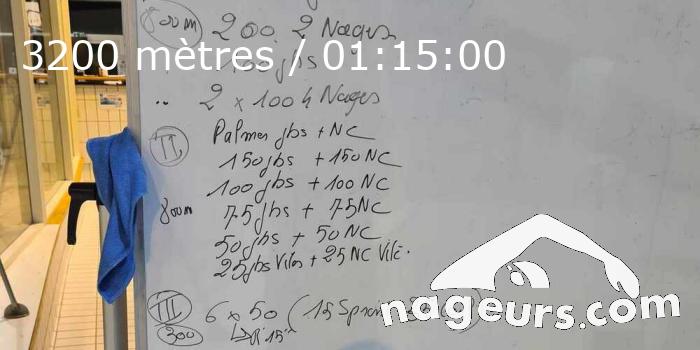 800m 200 2 Nages
3200 mètres / 01:15:00
jbs
2 x 100 4 Nages
II Palmes jbs + NC
150 jbs + 150 NC
100 jbs + 100 NC
800m 75 jbs + 75 NC
50 jbs + 50 NC
25 jbs Vites + 25 NC Vite.
III 6 x 50 (15 Sprint
300 R 15"
nageurs.com